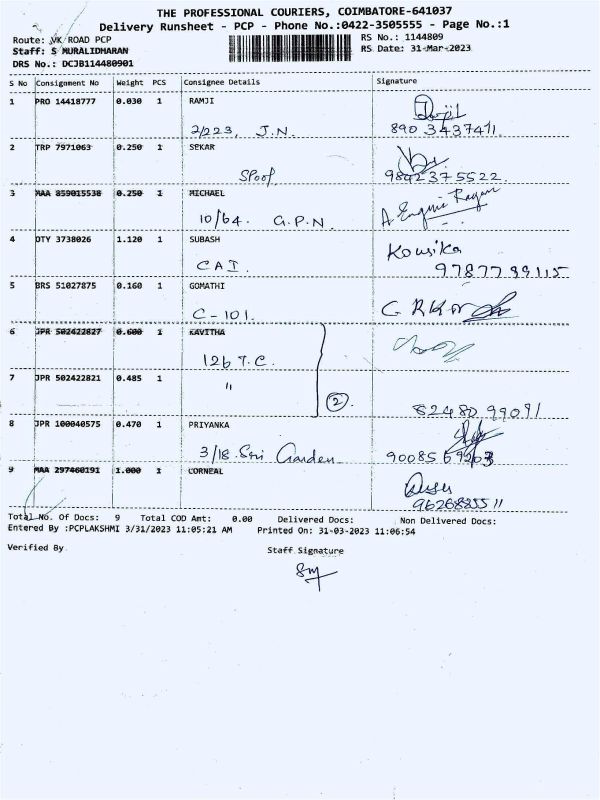 THE PROFESSIONAL COURIERS, COIMBATORE-641037
Delivery Runsheet - PCP - Phone No.:0422-3505555 - Page No.:1
Route: VK ROAD PCP
RS No.: 1144809
Staff: S MURALIDHARAN
RS Date: 31-Mar-2023
DRS No.: DCJB114480901
S No Consignment No Weight PCS Consignee Details Signature
1 PRO 14418777 0.030 1 RAMJI
2/223, J.N. 890 3437411.
2 TRP 7971063 0.250 1 SEKAR
Spoof 9842 375522.
3 MAA 859015538 0.250 1 MICHAEL
10/64. G.P.N.
4 DTY 3738026 1.120 1 SUBASH Kousika
CAI. 9787799115
5 BRS 51027875 0.160 1 GOMATHI
C-101.
6 JPR 502422827 0.600 1 KAVITHA
126 T.C.
7 JPR 502422821 0.485 1
" 2 82480 99091
8 JPR 100040575 0.470 1 PRIYANKA
3/18. Sri Garden
9 MAA 297460191 1.000 1 CORNEAL
Total No. Of Docs: 9 Total COD Amt: 0.00 Delivered Docs: Non Delivered Docs:
Entered By :PCPLAKSHMI 3/31/2023 11:05:21 AM Printed On: 31-03-2023 11:06:54
Verified By Staff Signature